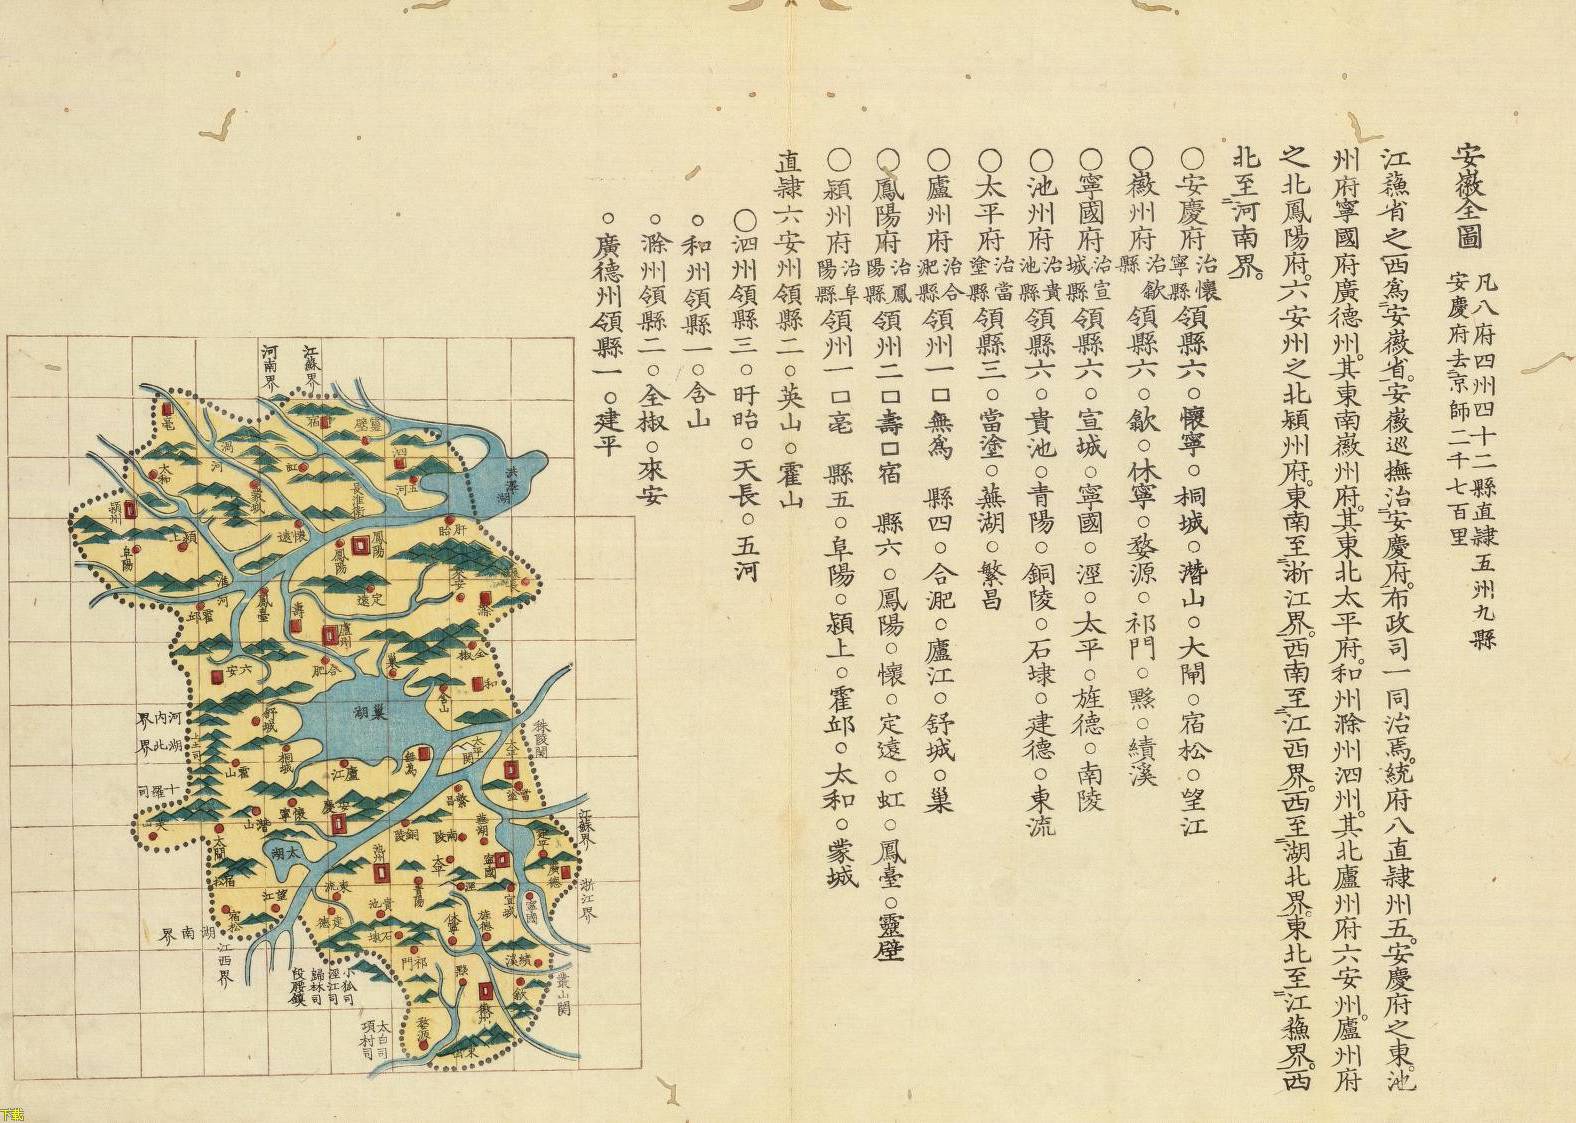 安徽全圖
凡八府四州四十二縣直隸五州九縣
安慶府去京師二千七百里
江蘓省之西爲安徽省。安徽巡撫治安慶府。布政司一同治焉。統府八直隸州五。安慶府之東池
州府寧國府廣德州。其東南徽州府。其東北太平府。和州滁州泗州。其北廬州府六安州。廬州府
之北鳳陽府。六安州之北潁州府。東南至浙江界。西南至江西界。西至湖北界。東北至江蘓界。西
北至河南界。
〇安慶府治懷寧縣領縣六。懷寧。桐城。潛山。大閘。宿松。望江
〇徽州府治歙縣領縣六。歙。休寧。婺源。祁門。黟。績溪
〇寧國府治宣城縣領縣六。宣城。寧國。涇。太平。旌德。南陵
〇池州府治貴池縣領縣六。貴池。青陽。銅陵。石埭。建德。東流
〇太平府治當塗縣領縣三。當塗。蕪湖。繁昌
〇廬州府治合淝縣領州一口無爲 縣四。合淝。廬江。舒城。巢
〇鳳陽府治鳳陽縣領州二口壽口宿 縣六。鳳陽。懷。定遠。虹。鳳臺。靈壁
〇潁州府治阜陽縣領州一口亳 縣五。阜陽。潁上。霍邱。太和。蒙城
直隸六安州領縣二。英山。霍山
〇泗州領縣三。盱眙。天長。五河
。和州領縣一。含山
。滁州領縣二。全椒。來安
。廣德州領縣一。建平
江蘇界
河南界
亳
宿
靈壁
泗
渦河
虹
五河
洪澤湖
太和
蒙城
長淮衛
潁州
懷遠
盱眙
潁上
阜陽
鳳陽
鳳陽
來安
淮河
定遠
滁
霍邱
鳳臺
壽
廬州
全椒
六安
合肥
巢
和
含山
巢湖
舒城
河內界
湖北界
桐城
無為
太平關
太平
秣陵関
霍山
廬江
當塗
十羅司
繁昌
安慶
懷寧
潛山
英山
江蘇界
銅陵
南陵
蕪湖
建平
太湖
池州
太平
寧國
廣德
宿松
青陽
涇
宣城
浙江界
東流
望江
貴池
寧國
宿松
建德
休寧
旌德
湖南界
石埭
江西界
祁門
黟
績溪
歙
叢山関
小狐司
涇江司
歸林司
段腰鎮
徽州
婺源
太白司
項村司
下载